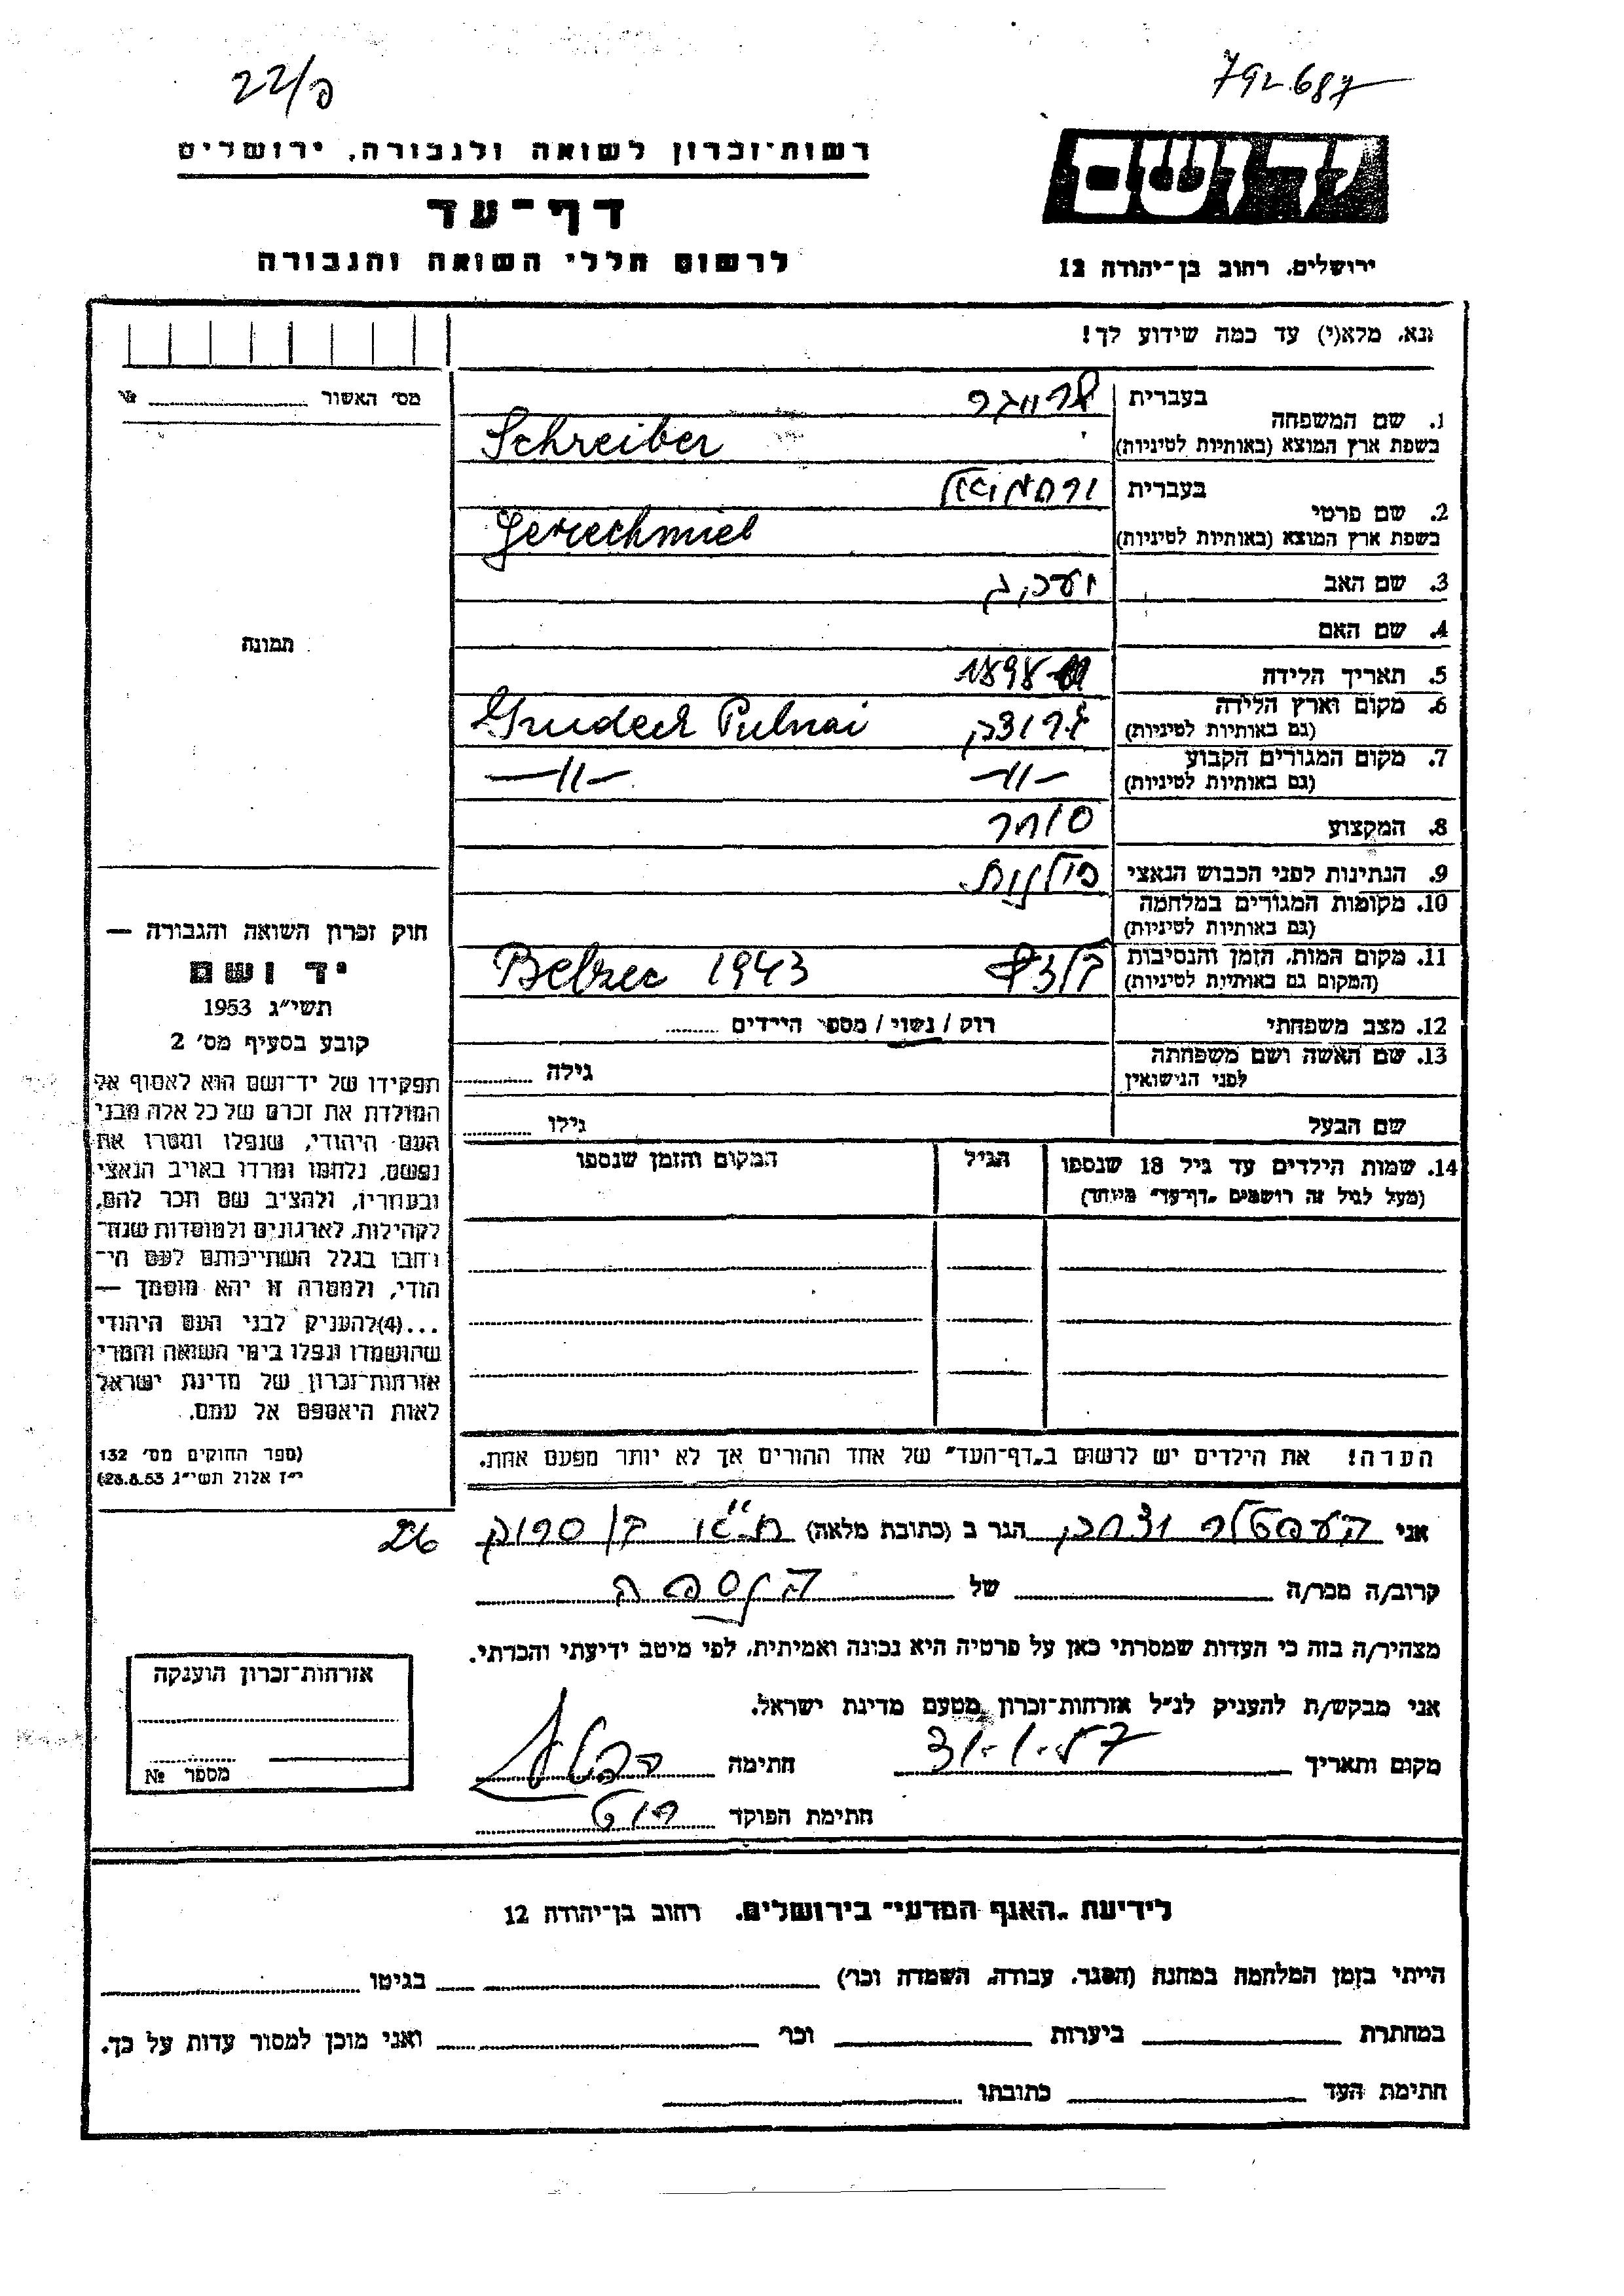 22/פ
792687
רשות־זכרון לשואה ולגבורה, ירושלים
יד ושם
דף־עד
לרשום חללי השואה והגבורה
ירושלים, רחוב בן־יהודה 12
נא, מלא(י) עד כמה שידוע לך!
מס׳ האשור № 
1. שם המשפחה
בעברית שרייבר
בשפת ארץ המוצא (באותיות לטיניות) Schreiber
2. שם פרטי
בעברית ירחמיאל
בשפת ארץ המוצא (באותיות לטיניות) Jerechmiel
3. שם האב יעקב
4. שם האם
5. תאריך הלידה 1898
6. מקום וארץ הלידה
(גם באותיות לטיניות) גרודק Grudeck
7. מקום המגורים הקבוע
(גם באותיות לטיניות) —״— —״—
8. המקצוע סוחר
9. הנתינות לפני הכבוש הנאצי פולנית
10. מקומות המגורים במלחמה
(גם באותיות לטיניות)
11. מקום המות, הזמן והנסיבות
(המקום גם באותיות לטיניות) בלזץ Belzec 1943
12. מצב משפחתי רוק / נשוי / מספר הילדים
13. שם האשה ושם משפחתה
לפני הנישואין גילה
שם הבעל גילו
14. שמות הילדים עד גיל 18 שנספו
(מעל לגיל זה רושמים „דף־עד״ מיוחד)
הגיל
המקום והזמן שנספו
הערה! את הילדים יש לרשום ב„דף־העד״ של אחד ההורים אך לא יותר מפעם אחת.
תמונה
חוק זכרון השואה והגבורה —
יד ושם
תשי״ג 1953
קובע בסעיף מס׳ 2
תפקידו של יד־ושם הוא לאסוף אל
המולדת את זכרם של כל אלה מבני
העם היהודי, שנפלו ומסרו את
נפשם, נלחמו ומרדו באויב הנאצי
ובעוזריו, ולהציב שם וזכר להם,
לקהילות, לארגונים ולמוסדות שנח־
רבו בגלל השתייכותם לעם הי־
הודי, ולמטרה זו יהא מוסמך —
...(4)להעניק לבני העם היהודי
שהושמדו ונפלו בימי השואה והמרי
אזרחות־זכרון של מדינת ישראל
לאות היאספם אל עמם.
(ספר החוקים מס׳ 132
י״ז אלול תשי״ג 28.8.53)
אני יצחק הגר ב (כתובת מלאה) ת״א בן סרוק 26
קרוב/ה מכר/ה של הנספה
מצהיר/ה בזה כי העדות שמסרתי כאן על פרטיה היא נכונה ואמיתית, לפי מיטב ידיעתי והכרתי.
אני מבקש/ת להעניק לנ״ל אזרחות־זכרון מטעם מדינת ישראל.
מקום ותאריך 31-1-57 חתימה
חתימת הפוקד
אזרחות־זכרון הוענקה
מספר №
לידיעת „האגף המדעי״ בירושלים, רחוב בן־יהודה 12
הייתי בזמן המלחמה במחנה (הסגר, עבודה, השמדה וכו׳) בגיטו
במחתרת ביערות וכו׳ ואני מוכן למסור עדות על כך.
חתימת העד כתובתו